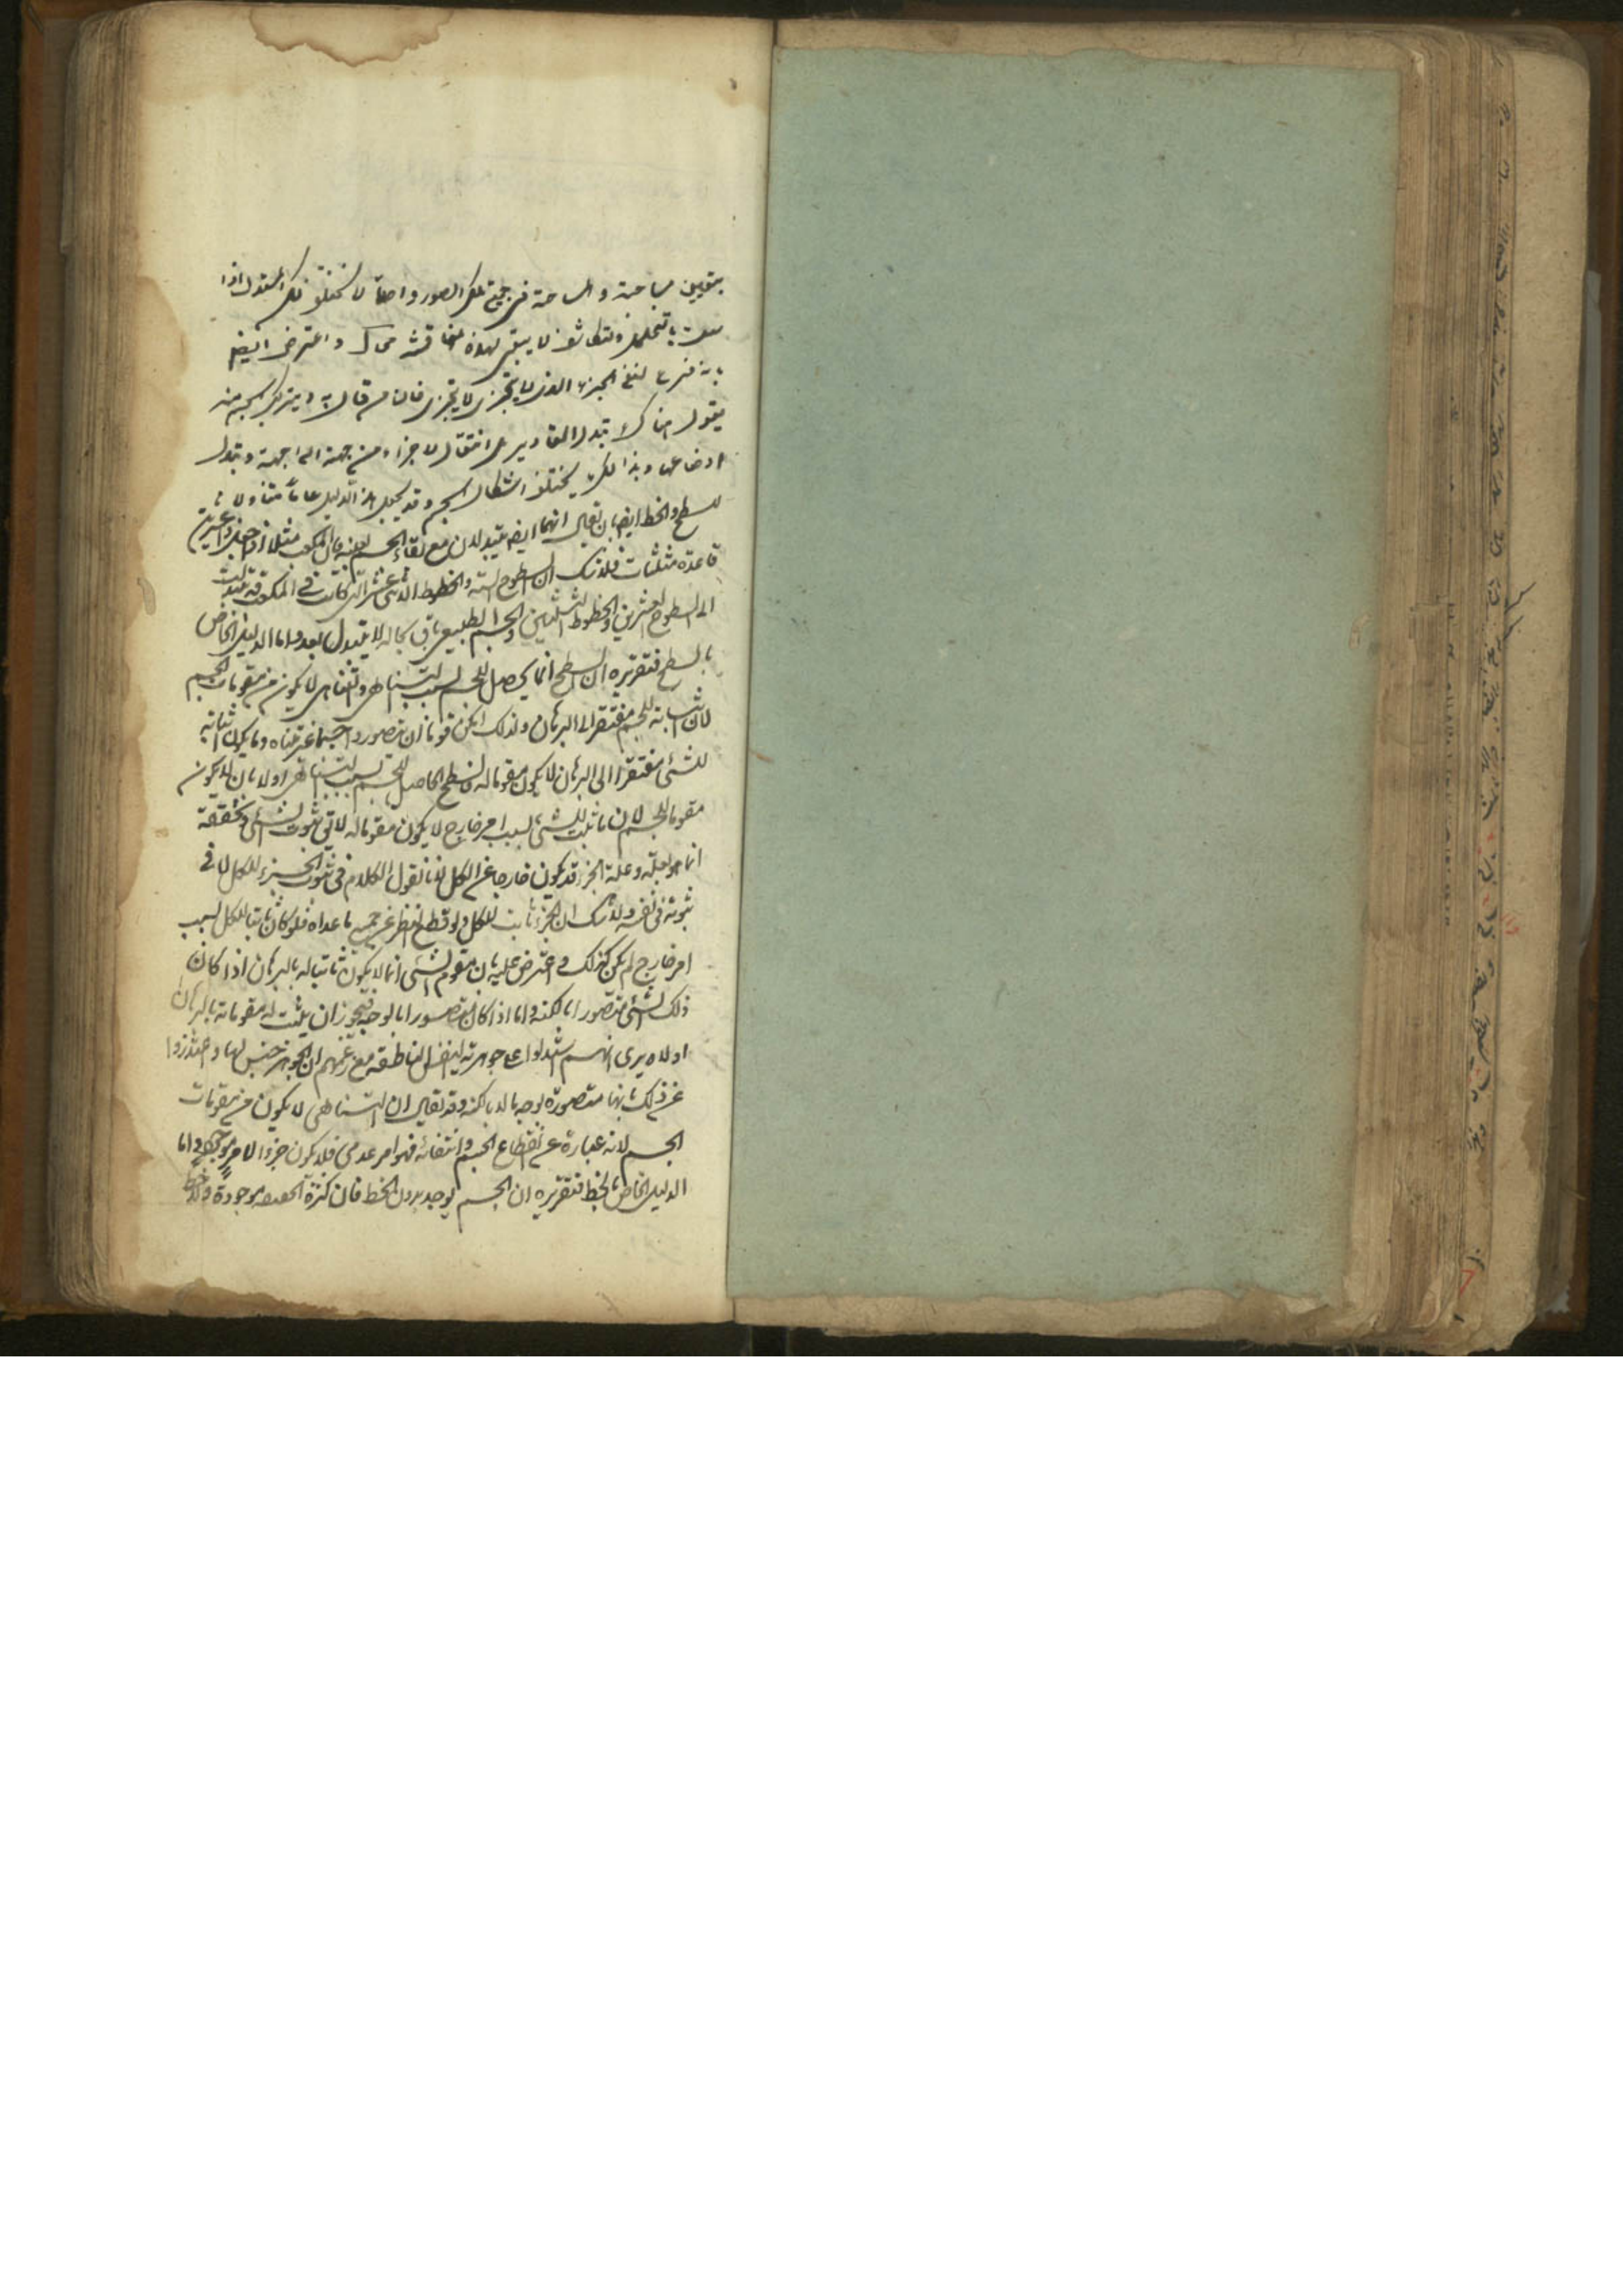 بتعيين مساحته والمساحة في جميع تلك الصور واحدة لا تختلف تلك المقدار اذا
بالتخلخل والتكاثف لا يبقى لهذه المناقشة مجال واعترض ايضا
بانه فرع لنفي الجزء الذي لا يتجزى فان من قال به وبتركب الجسم منه
يقول هناك لا تبدل المقادير بل انتقال الاجزاء من جهة الى جهة وتبدل
اوضاعها وبذلك يختلف اشكال الجسم وقد يجعل هذا الدليل عاما متناولا
للسطح والخط ايضا بان يقال انهما ايضا يتبدلان مع بقاء الجسم بعينه فان المكعب مثلا اذا جعل ذا عشرين
قاعدة مثلثات فلا شك ان السطوح الستة والخطوط الاثنى عشر التي كانت في المكعب قد تبدلت
الى السطوح العشرين والخطوط الثلثين والجسم الطبيعي باق بحاله لا يتبدل بعد واما الدليل الخاص
بالسطح فتقريره ان السطح انما يحصل للجسم بسبب التناهي والتناهي لا يكون من مقومات الجسم
لان اثباته للجسم مفتقر الى البرهان ولذلك امكن قوما ان تصوروا جسما غير متناه وما يكون اثباته
للشئ مفتقرا الى البرهان لا يكون مقوما له فالسطح الحاصل للجسم بسبب التناهي اولا بان لا يكون
مقوما للجسم لان ما ثبت للشئ بسبب امر خارج لا يكون مقوما له لا يقال ثبوت الشئ وتحققه
انما هو بعلته وعلة الجزء قد يكون خارجا عن الكل لانا نقول الكلام في ثبوت الجزء للكل لا في
ثبوته في نفسه ولا شك ان الجزء ثابت للكل ولو قطع النظر عن جميع ما عداه فلو كان ثابتا للكل بسبب
امر خارج لم يكن كذلك واعترض عليه بان مقوم الشئ انما لا يكون ثابتا له بالبرهان اذا كان
ذلك الشئ متصورا بالكنه واما اذا كان متصورا بالوجه فيجوز ان يثبت له مقوماته بالبرهان
اولا يرى انهم استدلوا على جوهرية النفس الناطقة مع زعمهم ان الجوهر جنس لها واعتذروا
عن ذلك بانها متصورة بوجه ما لا بالكنه وقد يقال ان التناهي لا يكون من مقومات
الجسم لانه عبارة عن انقطاع الجسم وانتفائه فهو امر عدمي فلا يكون جزءا لامر موجود واما
الدليل الخاص بالخط فتقريره ان الجسم يوجد بدون الخط فان كرة موجودة ولا خط